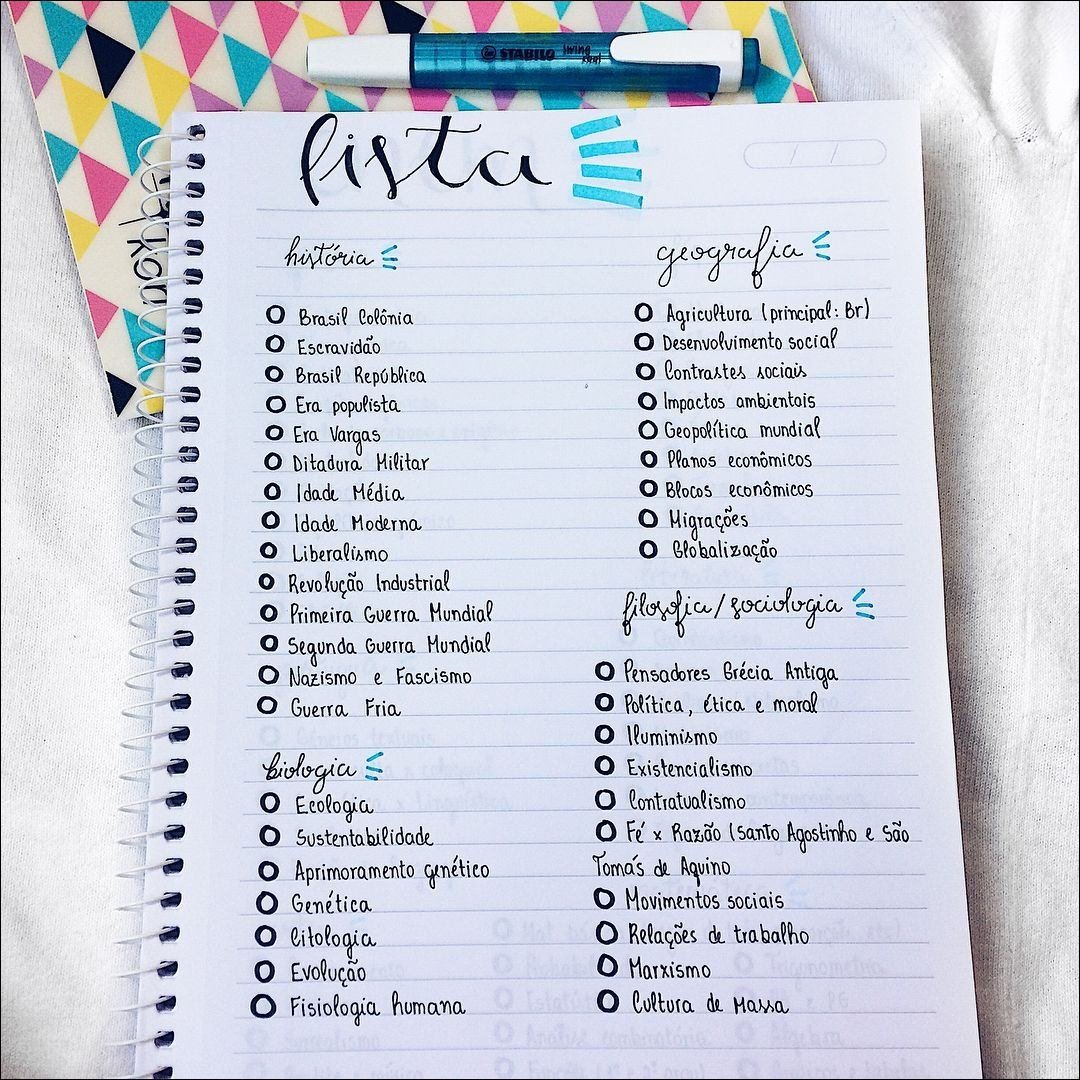 STABILO swing cool
lista
história
Brasil Colônia
Escravidão
Brasil República
Era populista
Era Vargas
Ditadura Militar
Idade Média
Idade Moderna
Liberalismo
Revolução Industrial
Primeira Guerra Mundial
Segunda Guerra Mundial
Nazismo e Fascismo
Guerra Fria
biologia
Ecologia
Sustentabilidade
Aprimoramento genético
Genética
Citologia
Evolução
Fisiologia humana
geografia
Agricultura (principal: Br)
Desenvolvimento social
Contrastes sociais
Impactos ambientais
Geopolítica mundial
Planos econômicos
Blocos econômicos
Migrações
Globalização
filosofia/sociologia
Pensadores Grécia Antiga
Política, ética e moral
Iluminismo
Existencialismo
Contratualismo
Fé x Razão (Santo Agostinho e São
Tomás de Aquino
Movimentos sociais
Relações de trabalho
Marxismo
Cultura de Massa